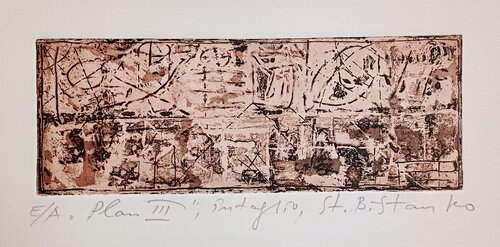 E/A. „Plan III", intaglio, St. B. Stanko